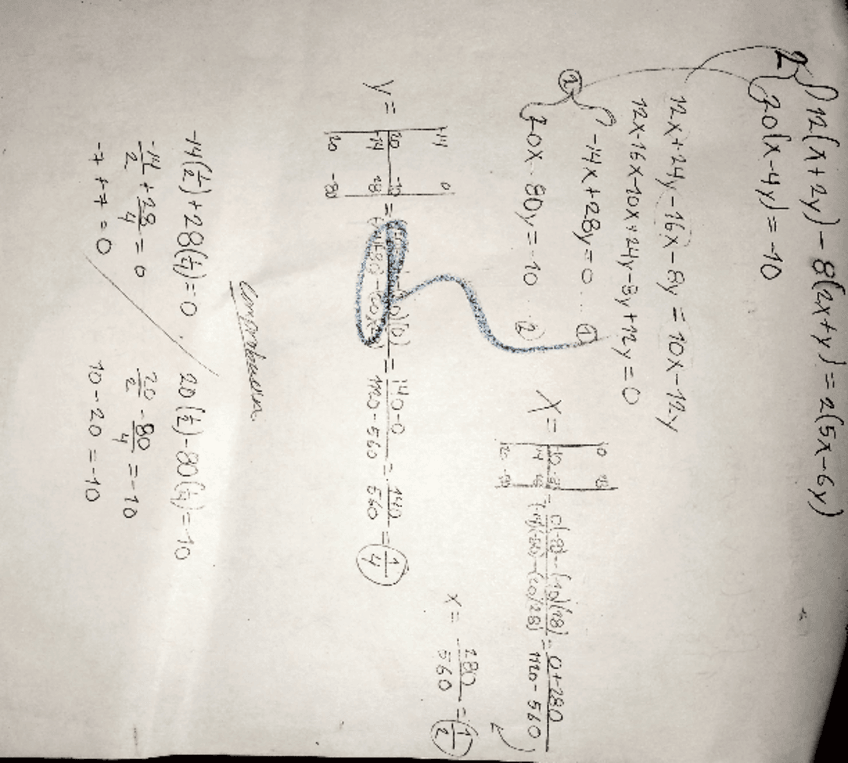 2 { 12(x+2y) - 8(2x+y) = 2(5x-6y)
20(x-4y) = -10
12x+24y-16x-8y = 10x-12y
12x-16x-10x+24y-8y+12y=0
① { -14x+28y=0 ... ①
20x-80y=-10 ②
X = 0 28
-10 -80
-14 28
20 -80
= 0(-80)-(-10)(28)
(-14)(-80)-(20)(28)
= 0+280
1120-560
x = 280
560
= 1
2
y = -14 0
20 -10
-14 28
20 -80
= 140-0
1120-560
= 140
560
= 1
4
-14(1/2)+28(1/4)=0
-14/2 + 28/4 = 0
-7+7=0
20(1/2)-80(1/4)=-10
20/2 - 80/4 = -10
10-20=-10